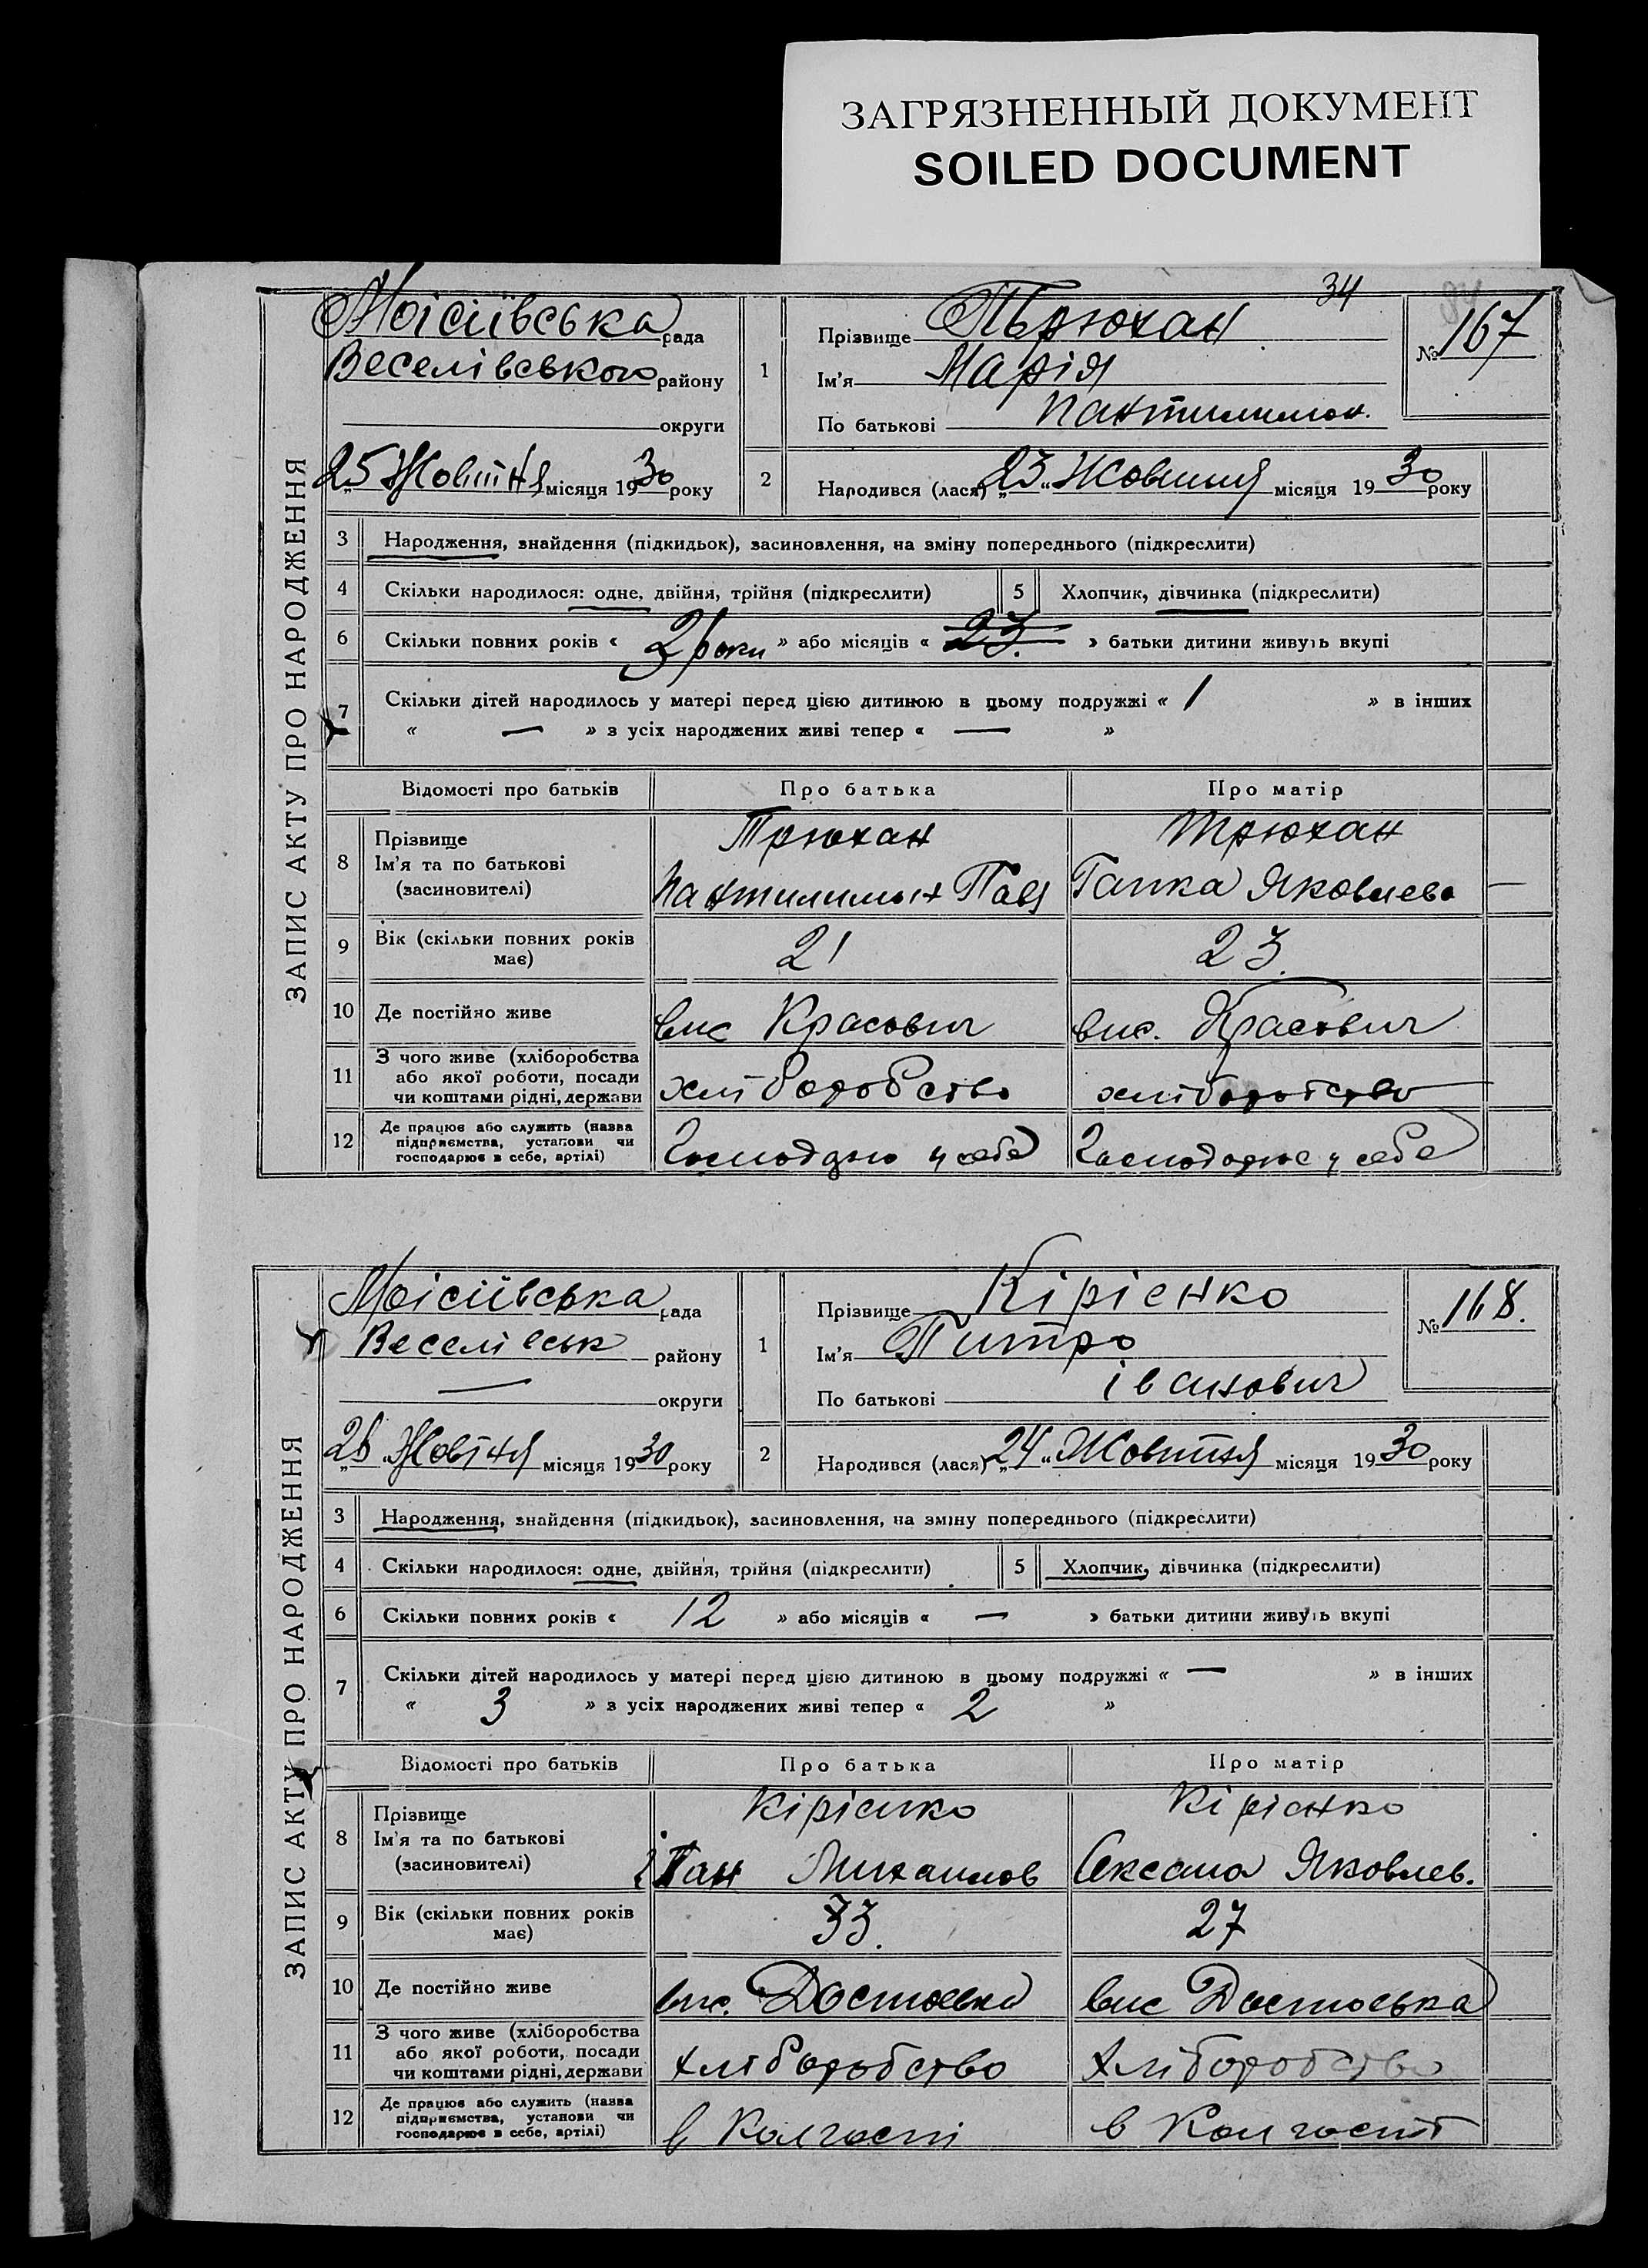 ЗАГРЯЗНЕННЫЙ ДОКУМЕНТ
SOILED DOCUMENT
34
ЗАПИС АКТУ ПРО НАРОДЖЕННЯ
Моісіївська рада
Веселівського району
округи
25 Жовтня місяця 1930 року
1
Прізвище Трюхан
Ім'я Марія
По батькові Пантилимон.
№ 167
2
Народився (лася) „23“ Жовтня місяця 1930 року
3 Народження, знайдення (підкидьок), засиновлення, на зміну попереднього (підкреслити)
4 Скільки народилося: одне, двійня, трійня (підкреслити) 5 Хлопчик, дівчинка (підкреслити)
6 Скільки повних років « 2 роки » або місяців « 23. » батьки дитини живуть вкупі
7 Скільки дітей народилось у матері перед цією дитиною в цьому подружжі « 1 » в інших
« — » з усіх народжених живі тепер « — »
Відомості про батьків Про батька Про матір
8 Прізвище
Ім'я та по батькові
(засиновителі)
Трюхан
Пантилимон Пав
Трюхан
Гапка Яковлева —
9 Вік (скільки повних років
має)
21 23.
10 Де постійно живе вис Красович вис. Красович
11 З чого живе (хліборобства
або якої роботи, посади
чи коштами рідні, держави
хліборобство хліборобство
12 Де працює або служить (назва
підприємства, установи чи
господарює в себе, артілі)
у себе Господарює у себе
ЗАПИС АКТУ ПРО НАРОДЖЕННЯ
Моісіївська рада
Веселівськ району
— округи
26 Жовтня місяця 1930 року
1
Прізвище Кірієнко
Ім'я Питро
По батькові іванович
№ 168.
2
Народився (лася) „24“ Жовтня місяця 1930 року
3 Народження, знайдення (підкидьок), засиновлення, на зміну попереднього (підкреслити)
4 Скільки народилося: одне, двійня, трійня (підкреслити) 5 Хлопчик, дівчинка (підкреслити)
6 Скільки повних років « 12 » або місяців « — » батьки дитини живуть вкупі
7 Скільки дітей народилось у матері перед цією дитиною в цьому подружжі « — » в інших
« 3 » з усіх народжених живі тепер « 2 »
Відомості про батьків Про батька Про матір
8 Прізвище
Ім'я та по батькові
(засиновителі)
Кірієнко
Михаилов
Кірієнко
Оксана Яковлев.
9 Вік (скільки повних років
має)
33. 27
10 Де постійно живе вис. Достоєвка вис Достоєвка
11 З чого живе (хліборобства
або якої роботи, посади
чи коштами рідні, держави
хліборобство хліборобство
12 Де працює або служить (назва
підприємства, установи чи
господарює в себе, артілі)
в Колгоспі в Колгоспі